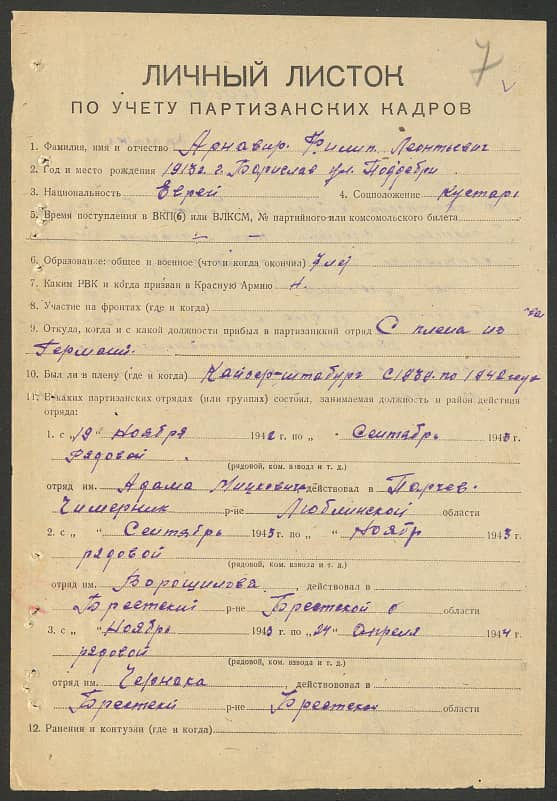 7
ЛИЧНЫЙ ЛИСТОК
ПО УЧЕТУ ПАРТИЗАНСКИХ КАДРОВ
1. Фамилия, имя и отчество Филип. Леонтьевич
2. Год и место рождения 1913 г. г. Борислав ул.
3. Национальность Еврей 4. Соцположение кустарь
5. Время поступления в ВКП(б) или ВЛКСМ, № партийного или комсомольского билета
— — —
6. Образование: общее и военное (что и когда окончил) 7 лет
7. Каким РВК и когда призван в Красную Армию
8. Участие на фронтах (где и когда)
9. Откуда, когда и с какой должности прибыл в партизанский отряд С плена из
Германи.
10. Был ли в плену (где и когда) с 1939 по 1942 год
11. В каких партизанских отрядах (или группах) состоял, занимаемая должность и район действия
отряда:
1. с „19“ Ноября 1942 г. по „ Сентябрь 1943 г.
рядовой
(рядовой, ком. взвода и т. д.)
отряд им. Адама Мицкевича действовал в Парчев.
Чимерник р-не Люблинской области
2. с „ “ Сентябрь 1943 г. по „ “ Ноябр 1943 г.
рядовой
(рядовой, ком. взвода и т. д.)
отряд им. Ворошилова, действовал в
Брестский р-не Брестской о области
3. с „ “ Ноябрь 1943 г. по „24“ Апреля 1944 г.
рядовой
(рядовой, ком. взвода и т. д.)
отряд им. Чернака, действовал в
Брестски р-не Брестской области
12. Ранения и контузии (где и когда)